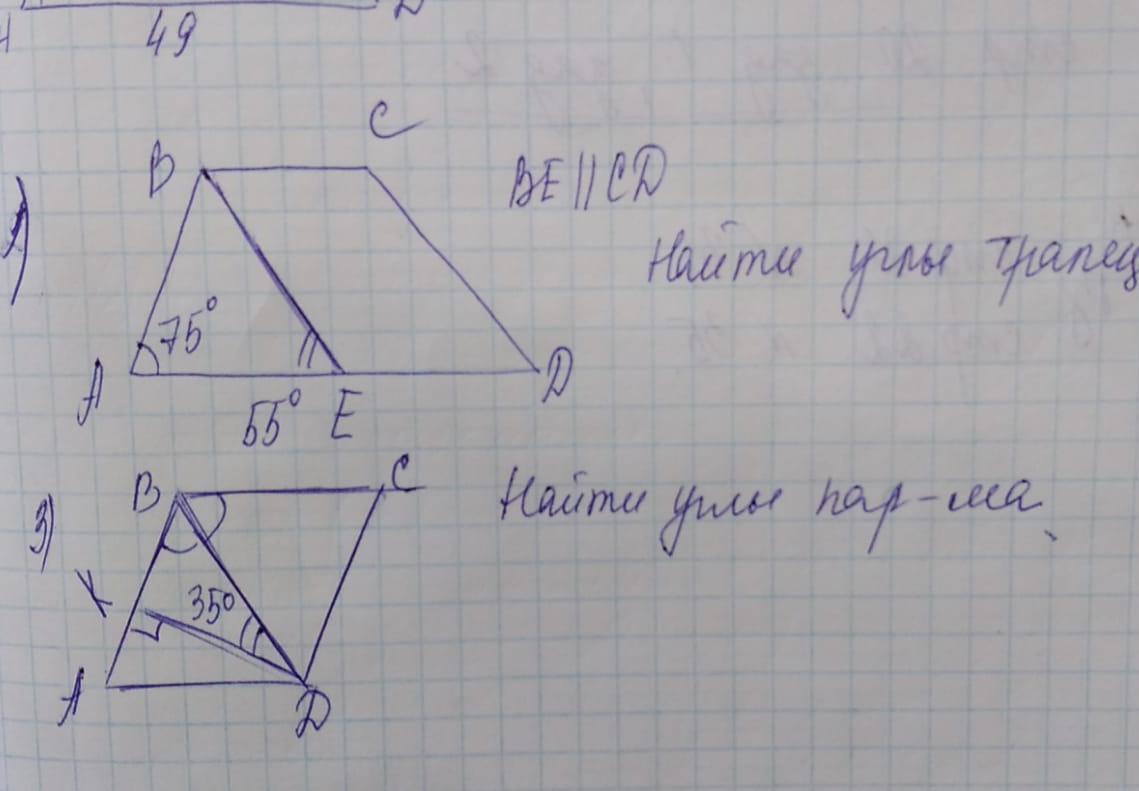 49
C
B
BE||CD
Найти углы трапец
75°
A
D
55°
E
B
C
Найти углы пар-ма
3)
35°
A
D